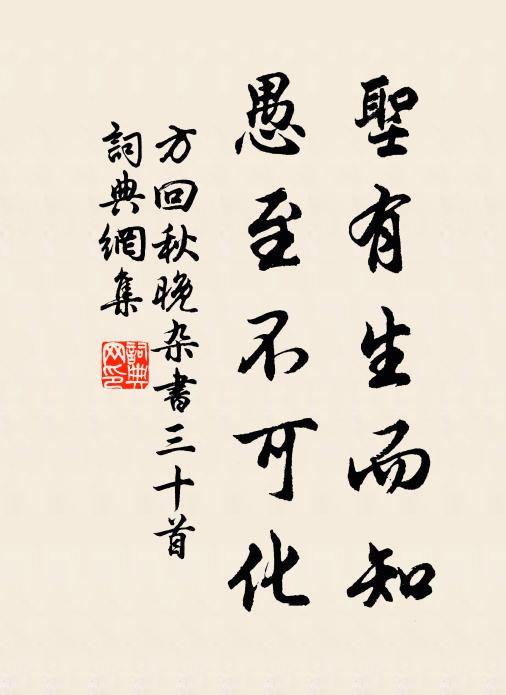 聖有生而知
愚至不可化
方回秋晚杂書三十首
詞典網集
詞典
网印